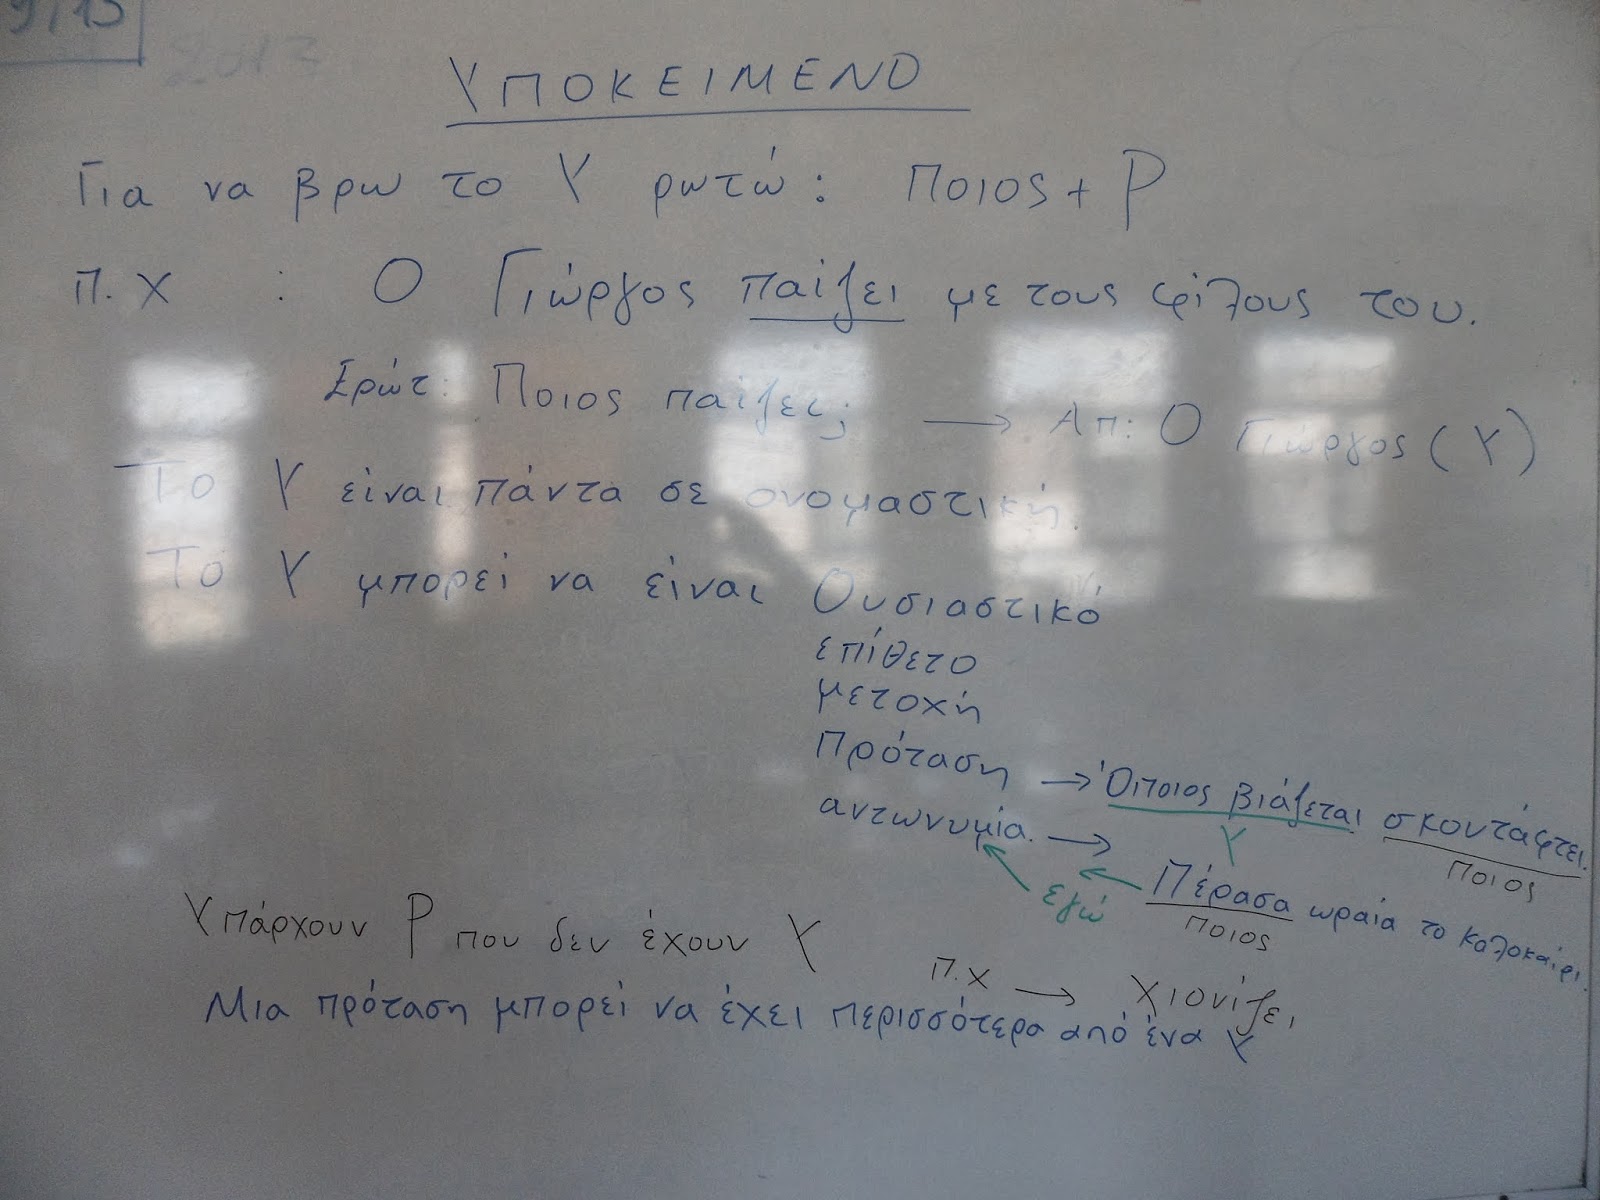 9/13
2013
ΥΠΟΚΕΙΜΕΝΟ
Για να βρω το Υ ρωτώ: Ποιος + Ρ
π.χ : Ο Γιώργος παίζει με τους φίλους του.
Ερώτ: Ποιος παίζει; → Απ: Ο Γιώργος (Υ)
Το Υ είναι πάντα σε ονομαστική.
Το Υ μπορεί να είναι Ουσιαστικό
επίθετο
μετοχή
Πρόταση → Όποιος βιάζεται σκοντάφτει.
Υ ποιος
αντωνυμία. → Πέρασα ωραία το καλοκαίρι.
εγώ ποιος
Υπάρχουν Ρ που δεν έχουν Υ
π.χ → Χιονίζει
Μια πρόταση μπορεί να έχει περισσότερα από ένα Υ